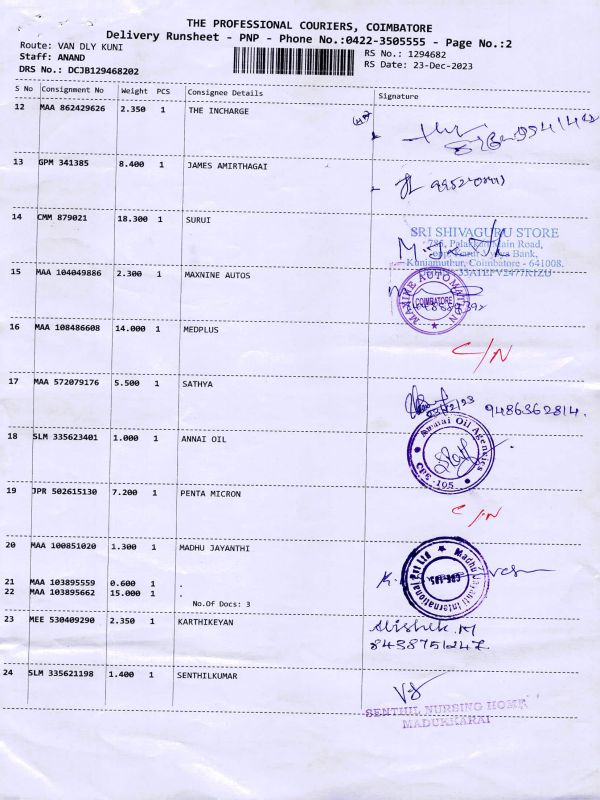 THE PROFESSIONAL COURIERS, COIMBATORE
Delivery Runsheet - PNP - Phone No.:0422-3505555 - Page No.:2
Route: VAN DLY KUNI RS No.: 1294682
Staff: ANAND RS Date: 23-Dec-2023
DRS No.: DCJB129468202
S No Consignment No Weight PCS Consignee Details Signature
12 MAA 862429626 2.350 1 THE INCHARGE
13 GPM 341385 8.400 1 JAMES AMIRTHAGAI
14 CMM 879021 18.300 1 SURUI
SRI SHIVAGURU STORE
Palakkad Main Road,
Kuniamuthur, Coimbatore - 641008.
15 MAA 104049886 2.300 1 MAXNINE AUTOS
MAXINE AUTOMATION
COIMBATORE
16 MAA 108486608 14.000 1 MEDPLUS C/N
17 MAA 572079176 5.500 1 SATHYA 9486362814.
18 SLM 335623401 1.000 1 ANNAI OIL
Annai Oil Agencies
CBE-105
19 JPR 502615130 7.200 1 PENTA MICRON C/N
20 MAA 100851020 1.300 1 MADHU JAYANTHI
Madhu Jayanti International Pvt Ltd
21 MAA 103895559 0.600 1 .
22 MAA 103895662 15.000 1 .
No.Of Docs: 3
23 MEE 530409290 2.350 1 KARTHIKEYAN Abishek.M
8438751247.
24 SLM 335621198 1.400 1 SENTHILKUMAR
SENTHIL NURSING HOME
MADUKKARAI